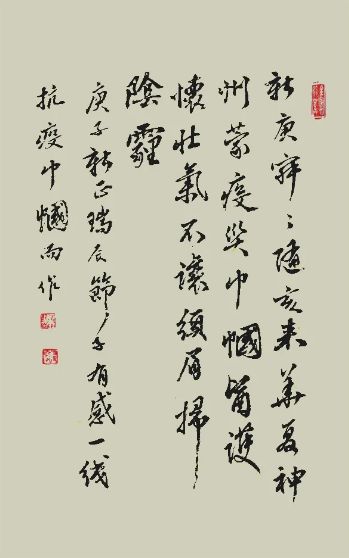 新庚隨亥来華夏神
州蒙疫災巾幗醫護
懷壯氣不讓須眉掃
陰霾
庚子新正瑞辰節有感一线
抗疫巾幗而作